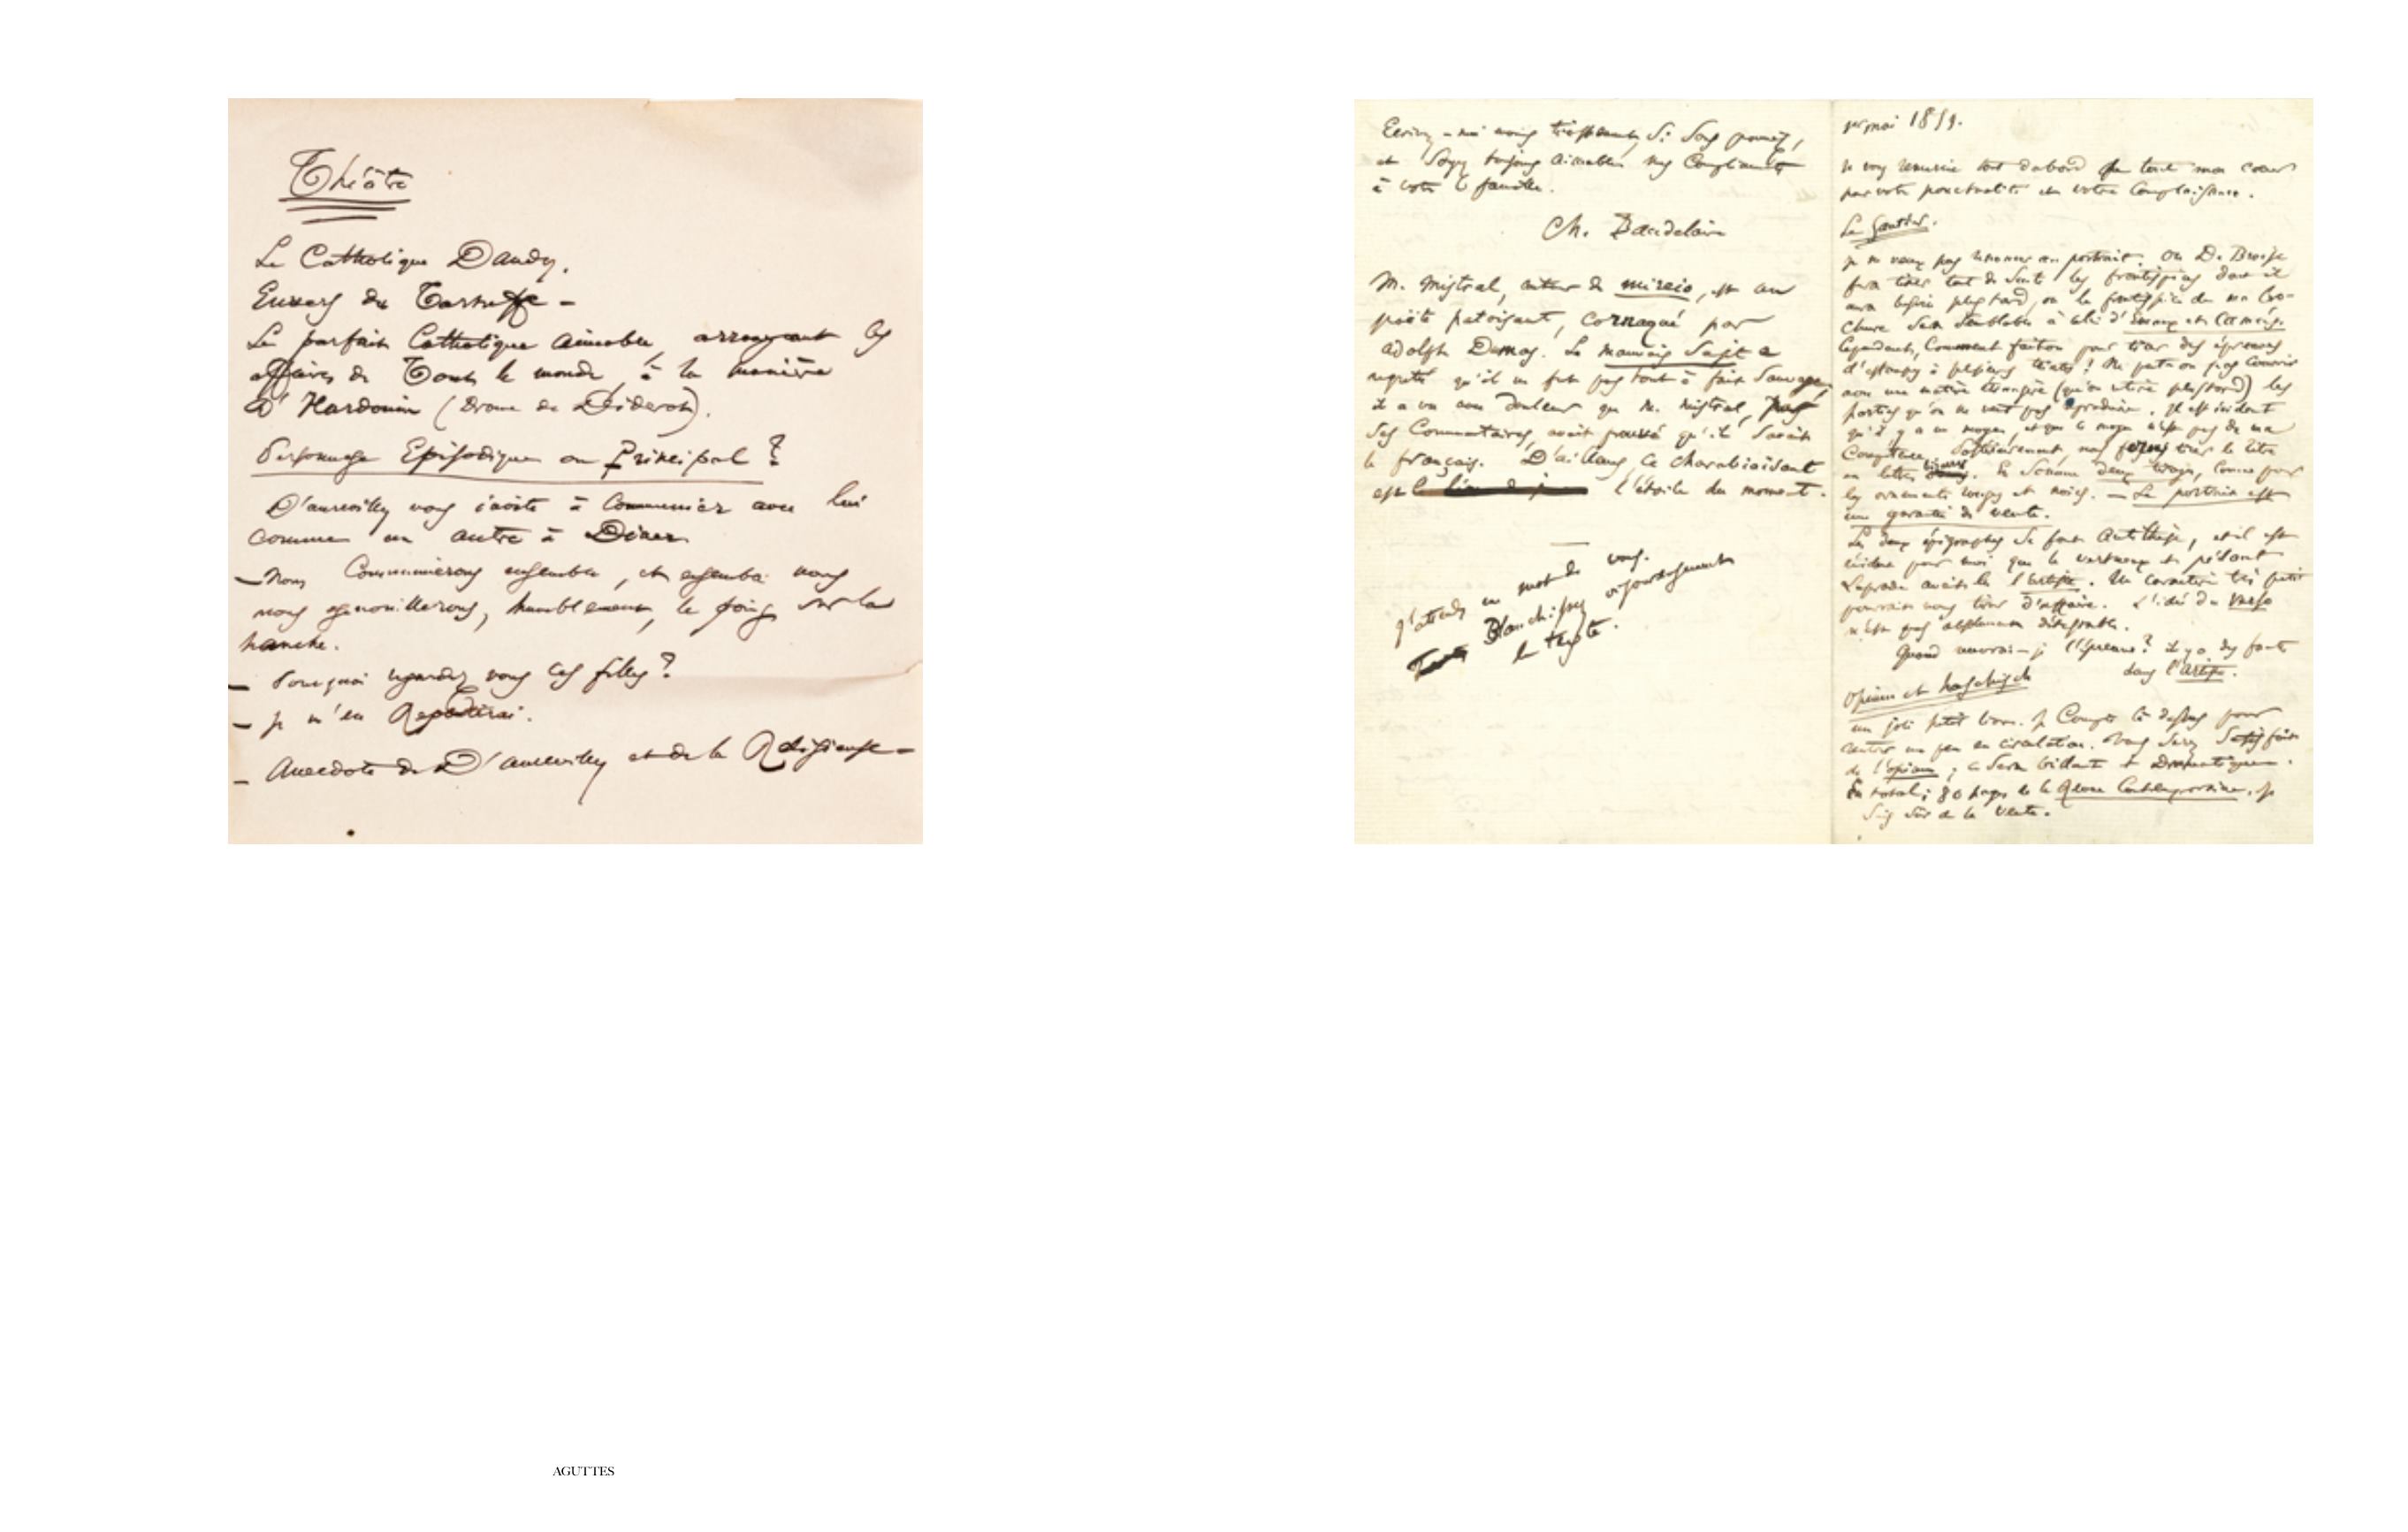 Théâtre
Le Catholique Dandy.
Envers du Tartuffe –
Le parfait Catholique aimable, arrangeant les
affaires de Tout le monde, à la manière
d'Hardouin (Drame de Diderot).
Personnage Episodique ou Principal ?
D'aurevilly vous invite à Communier avec lui
comme un autre à Diner
– Nous Communierons ensemble, et ensemble nous
nous agenouillerons, humblement, le poing sur la
hanche.
– Pourquoi regardez vous ces filles ?
– Je m'en Repentirai.
– Anecdote de D'aurevilly et de la Religieuse –
Ecrivez-moi moins tristement, si vous pouvez,
et soyez toujours aimable. Mes Compliments
à votre famille.
Ch. Baudelaire
M. Mistral, auteur de mireio, est un
poëte patoisant, cornaqué par
adolphe Dumas. Le mauvais sujet a
regretté qu'il ne fut pas tout à fait Sauvage,
il a vu avec douleur que M. Mistral, par
ses Commentaires, avait prouvé qu'il savait
le français. D'ailleurs, ce charabiaisant
est l'étoile du moment.
J'attends un mot de vous.
Blanchissez vigoureusement
le texte.
1er mai 1859.
Je vous remercie tout d'abord de tout mon cœur
par votre ponctualité et votre Complaisance.
Le Gautier.
Je ne veux pas renoncer au portrait. Ou De Broise
fera tirer tout de suite les frontispices dont il
aura besoin plus tard, ou le frontispice de ma bro-
chure sera semblable à celui d'Emaux et Camées.
Cependant, Comment faition pour tirer des épreuves
d'estampes à plusieurs états ? Ne peut-on pas couvrir
avec une matière étrangère (qu'on retire plus tard) les
parties qu'on ne veut pas reproduire. Il est évident
qu'il y a un moyen, et que ce moyen n'est pas de ma
Compétence. Postérieurement, nous ferons tirer le titre
en lettres rouges. En somme deux tirages, comme pour
les ornements rouges et noirs. – Le portrait est
une garantie de vente.
Les deux épigraphes se font Antithèse, et il est
évident pour moi que le vertueux et pédant
Laprade avait lu l'artiste. Un caractère très petit
pourrait nous tirer d'affaire. L'idée du verso
n'est pas absolument détestable.
Quand recevrai-je l'épreuve ? il y a des fautes
dans l'artiste.
Opium et haschisch
un joli petit livre. Je Compte là dessus pour
rentrer un peu en circulation. Vous serez satisfait
de l'opium ; ce sera brillant et Dramatique.
En total ; 80 pages de la Revue Contemporaine. Je
suis sûr de la vente.
AGUTTES